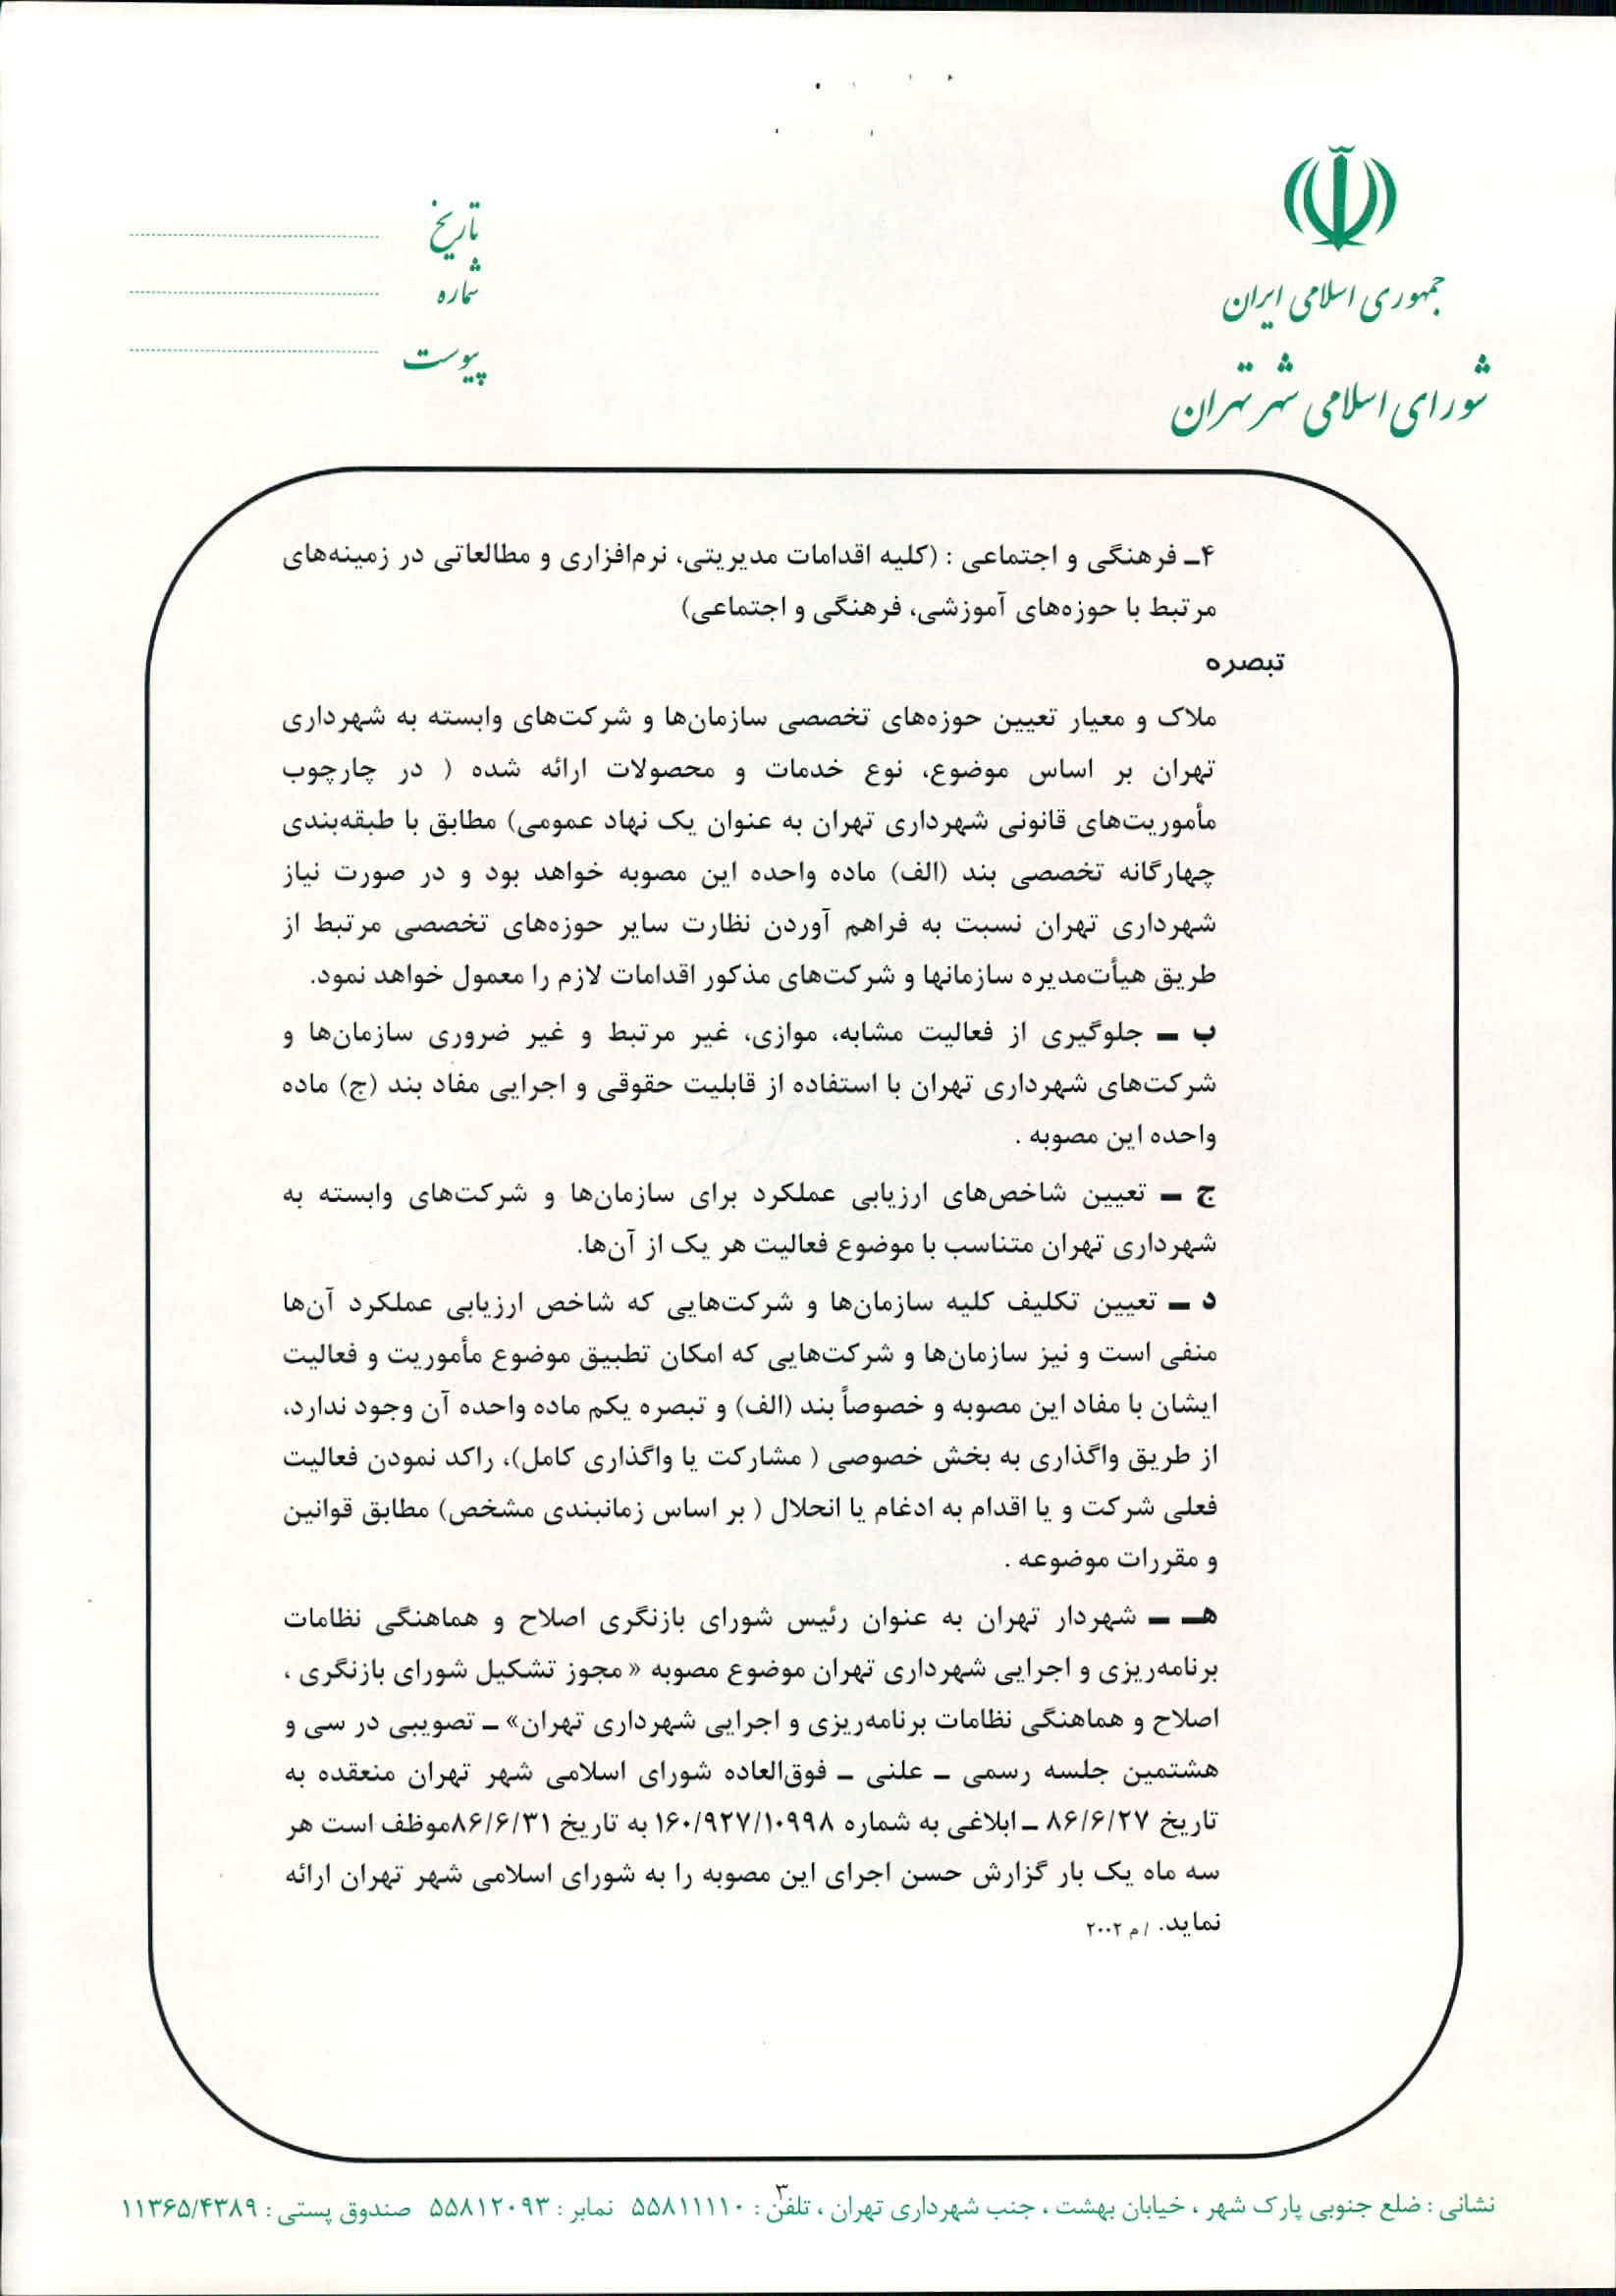 جمهوری اسلامی ایران
شورای اسلامی شهر تهران
تاریخ
شماره
پیوست
۴ـ فرهنگی و اجتماعی : (کلیه اقدامات مدیریتی، نرم‌افزاری و مطالعاتی در زمینه‌های
مرتبط با حوزه‌های آموزشی، فرهنگی و اجتماعی)
تبصره
ملاک و معیار تعیین حوزه‌های تخصصی سازمان‌ها و شرکت‌های وابسته به شهرداری
تهران بر اساس موضوع، نوع خدمات و محصولات ارائه شده ( در چارچوب
مأموریت‌های قانونی شهرداری تهران به عنوان یک نهاد عمومی) مطابق با طبقه‌بندی
چهارگانه تخصصی بند (الف) ماده واحده این مصوبه خواهد بود و در صورت نیاز
شهرداری تهران نسبت به فراهم آوردن نظارت سایر حوزه‌های تخصصی مرتبط از
طریق هیأت‌مدیره سازمانها و شرکت‌های مذکور اقدامات لازم را معمول خواهد نمود.
ب ـ جلوگیری از فعالیت مشابه، موازی، غیر مرتبط و غیر ضروری سازمان‌ها و
شرکت‌های شهرداری تهران با استفاده از قابلیت حقوقی و اجرایی مفاد بند (ج) ماده
واحده این مصوبه .
ج ـ تعیین شاخص‌های ارزیابی عملکرد برای سازمان‌ها و شرکت‌های وابسته به
شهرداری تهران متناسب با موضوع فعالیت هر یک از آن‌ها.
د ـ تعیین تکلیف کلیه سازمان‌ها و شرکت‌هایی که شاخص ارزیابی عملکرد آن‌ها
منفی است و نیز سازمان‌ها و شرکت‌هایی که امکان تطبیق موضوع مأموریت و فعالیت
ایشان با مفاد این مصوبه و خصوصاً بند (الف) و تبصره یکم ماده واحده آن وجود ندارد،
از طریق واگذاری به بخش خصوصی ( مشارکت یا واگذاری کامل)، راکد نمودن فعالیت
فعلی شرکت و یا اقدام به ادغام یا انحلال ( بر اساس زمانبندی مشخص) مطابق قوانین
و مقررات موضوعه .
هـ ـ شهردار تهران به عنوان رئیس شورای بازنگری اصلاح و هماهنگی نظامات
برنامه‌ریزی و اجرایی شهرداری تهران موضوع مصوبه « مجوز تشکیل شورای بازنگری ،
اصلاح و هماهنگی نظامات برنامه‌ریزی و اجرایی شهرداری تهران» ـ تصویبی در سی و
هشتمین جلسه رسمی ـ علنی ـ فوق‌العاده شورای اسلامی شهر تهران منعقده به
تاریخ ۸۶/۶/۲۷ ـ ابلاغی به شماره ۱۶۰/۹۲۷/۱۰۹۹۸ به تاریخ ۸۶/۶/۳۱موظف است هر
سه ماه یک بار گزارش حسن اجرای این مصوبه را به شورای اسلامی شهر تهران ارائه
نماید. /م ۲۰۰۲
۳
نشانی : ضلع جنوبی پارک شهر ، خیابان بهشت ، جنب شهرداری تهران ، تلفن : ۵۵۸۱۱۱۱۰ نمابر : ۵۵۸۱۲۰۹۳ صندوق پستی : ۱۱۳۶۵/۴۳۸۹